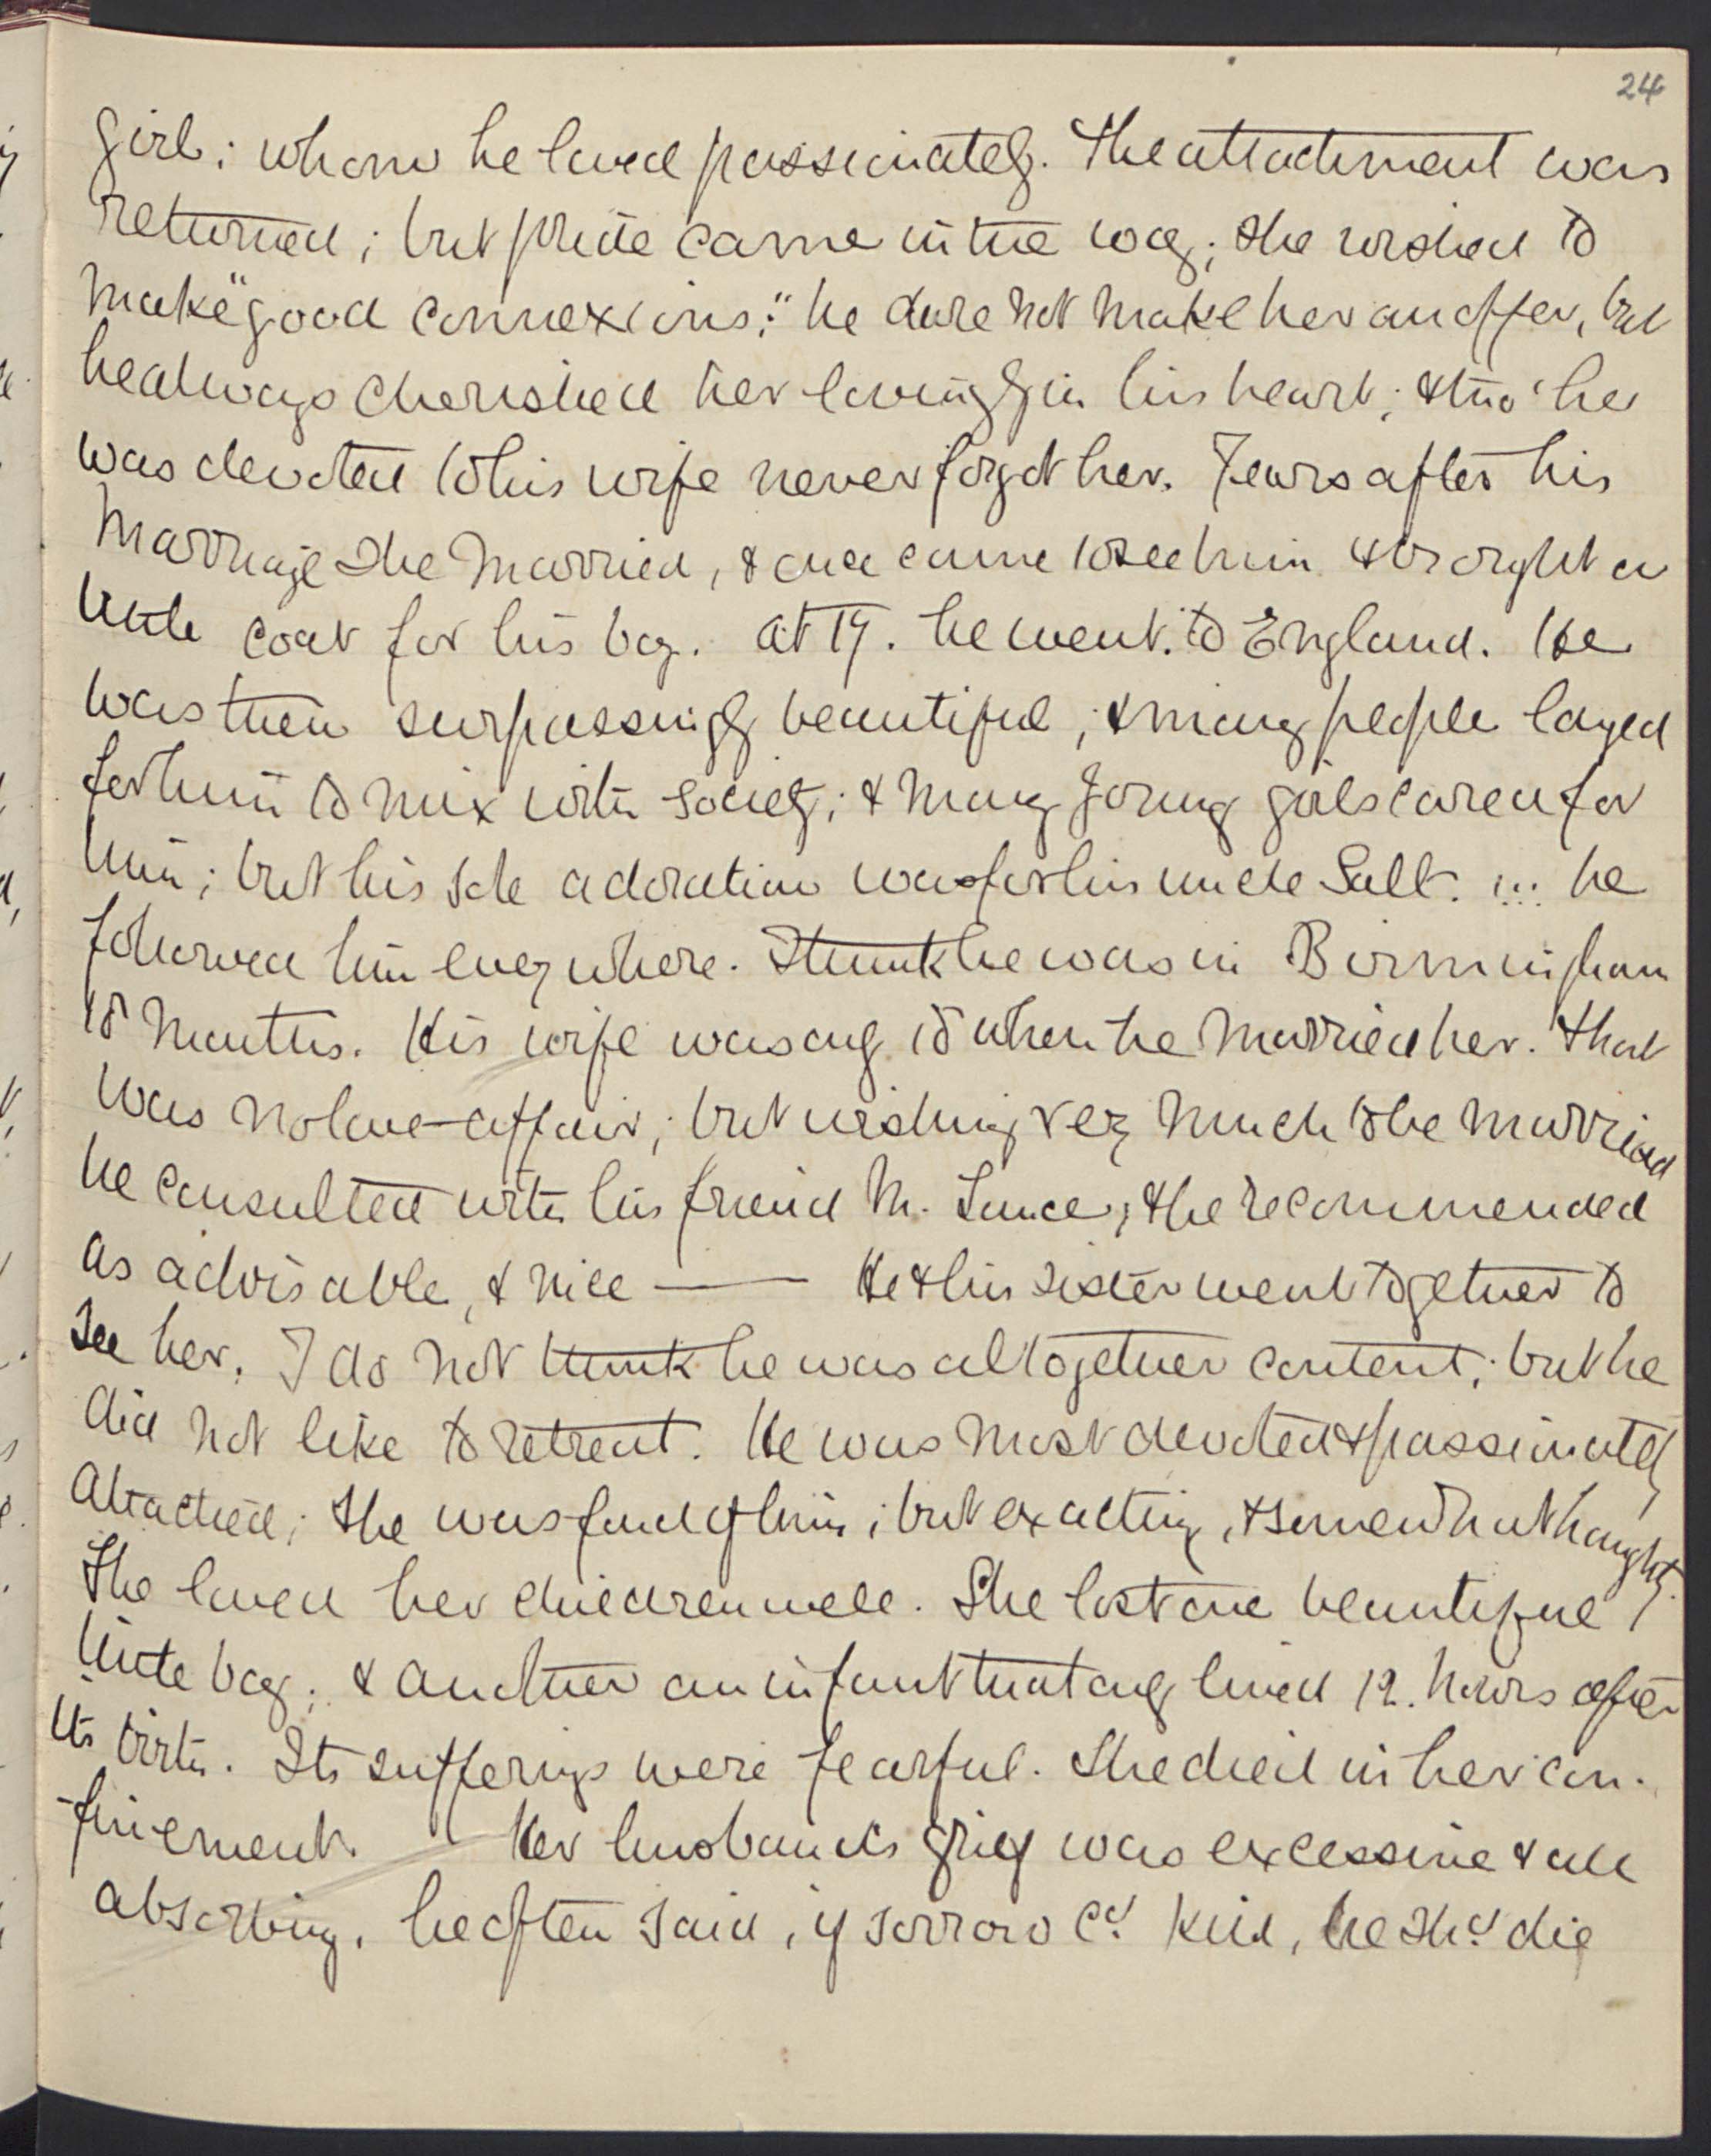 24
girl; whom he loved passionately. The attachment was
returned; but pride came in the way; she wished to
make "good connexions;" he dare not make her an offer, but
he always cherished her lovingly in his heart; & tho' he
was devoted to his wife never forgot her. Years after his
marriage she married, & once came to see him & brought a
little coat for his boy. At 19. he went to England. He
was then surpassingly beautiful, & many people
for him to mix with society; & many young girls cared for
him; but his sole adoration was for his uncle Salt. ... he
followed him everywhere. I think he was in Birmingham
18 months. His wife was only 18 when he married her. That
was no love-affair; but wishing very much to be married
he consulted with his friend M. Lance, & he recommended
as advisable, & nice —— He & his sister went together to
see her. I do not think he was altogether content; but he
did not like to retreat. He was most devoted & passionately
attached; she was fond of him; but exacting, & somewhat haughty.
She loved her children well. She lost one beautiful
little boy; & another an infant that only lived 12. hours after
its birth. Its sufferings were fearful. She died in her con-
-finement. Her husband's grief was excessive & all
absorbing. he often said, if sorrow cd kill, he shd die